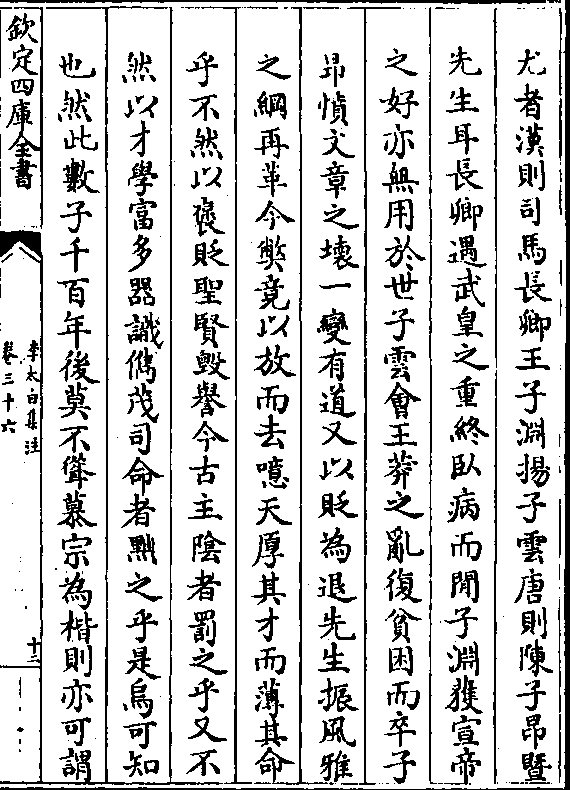 尤者漢則司馬長卿王子淵揚子雲唐則陳子昂暨
先生耳長卿遇武皇之重終臥病而閒子淵獲宣帝
之好亦無用於世子雲會王莽之亂復貧困而卒子
昂憤文章之壞一變有道又以貶為退先生振風雅
之綱再革今弊竟以放而去噫天厚其才而薄其命
乎不然以褒貶聖賢毀譽今古主陰者罰之乎又不
然以才學富多器識儁茂司命者黜之乎是烏可知
也然此數子千百年後莫不聳慕宗為楷則亦可謂
欽定四庫全書
李太白集注
卷三十六
十三